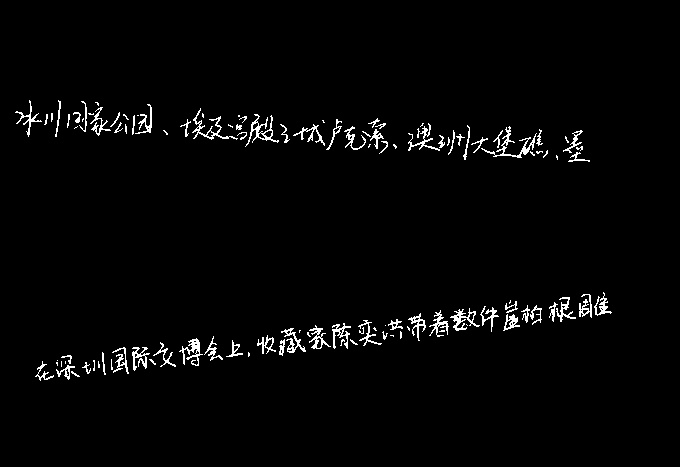 冰川国家公园、埃及宫殿之城卢克索、澳洲大堡礁、墨
在深圳国际文博会上,收藏家陈奕洪带着数件崖柏根雕